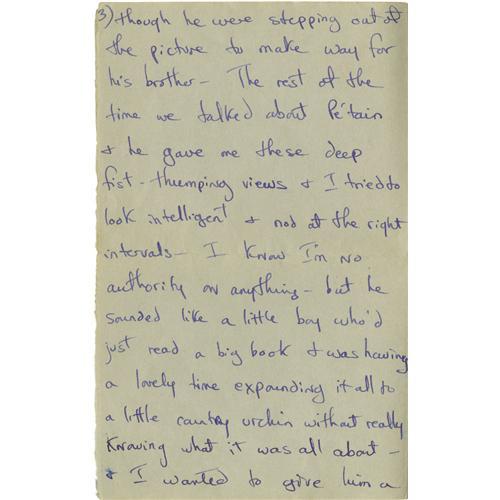 3) though he were stepping out of
the picture to make way for
his brother - The rest of the
time we talked about Pétain
& he gave me these deep
fist-thumping views & I tried to
look intelligent & nod at the right
intervals - I know I'm no
authority on anything - but he
sounded like a little boy who'd
just read a big book & was having
a lovely time expounding it all to
a little country urchin without really
knowing what it was all about -
& I wanted to give him a